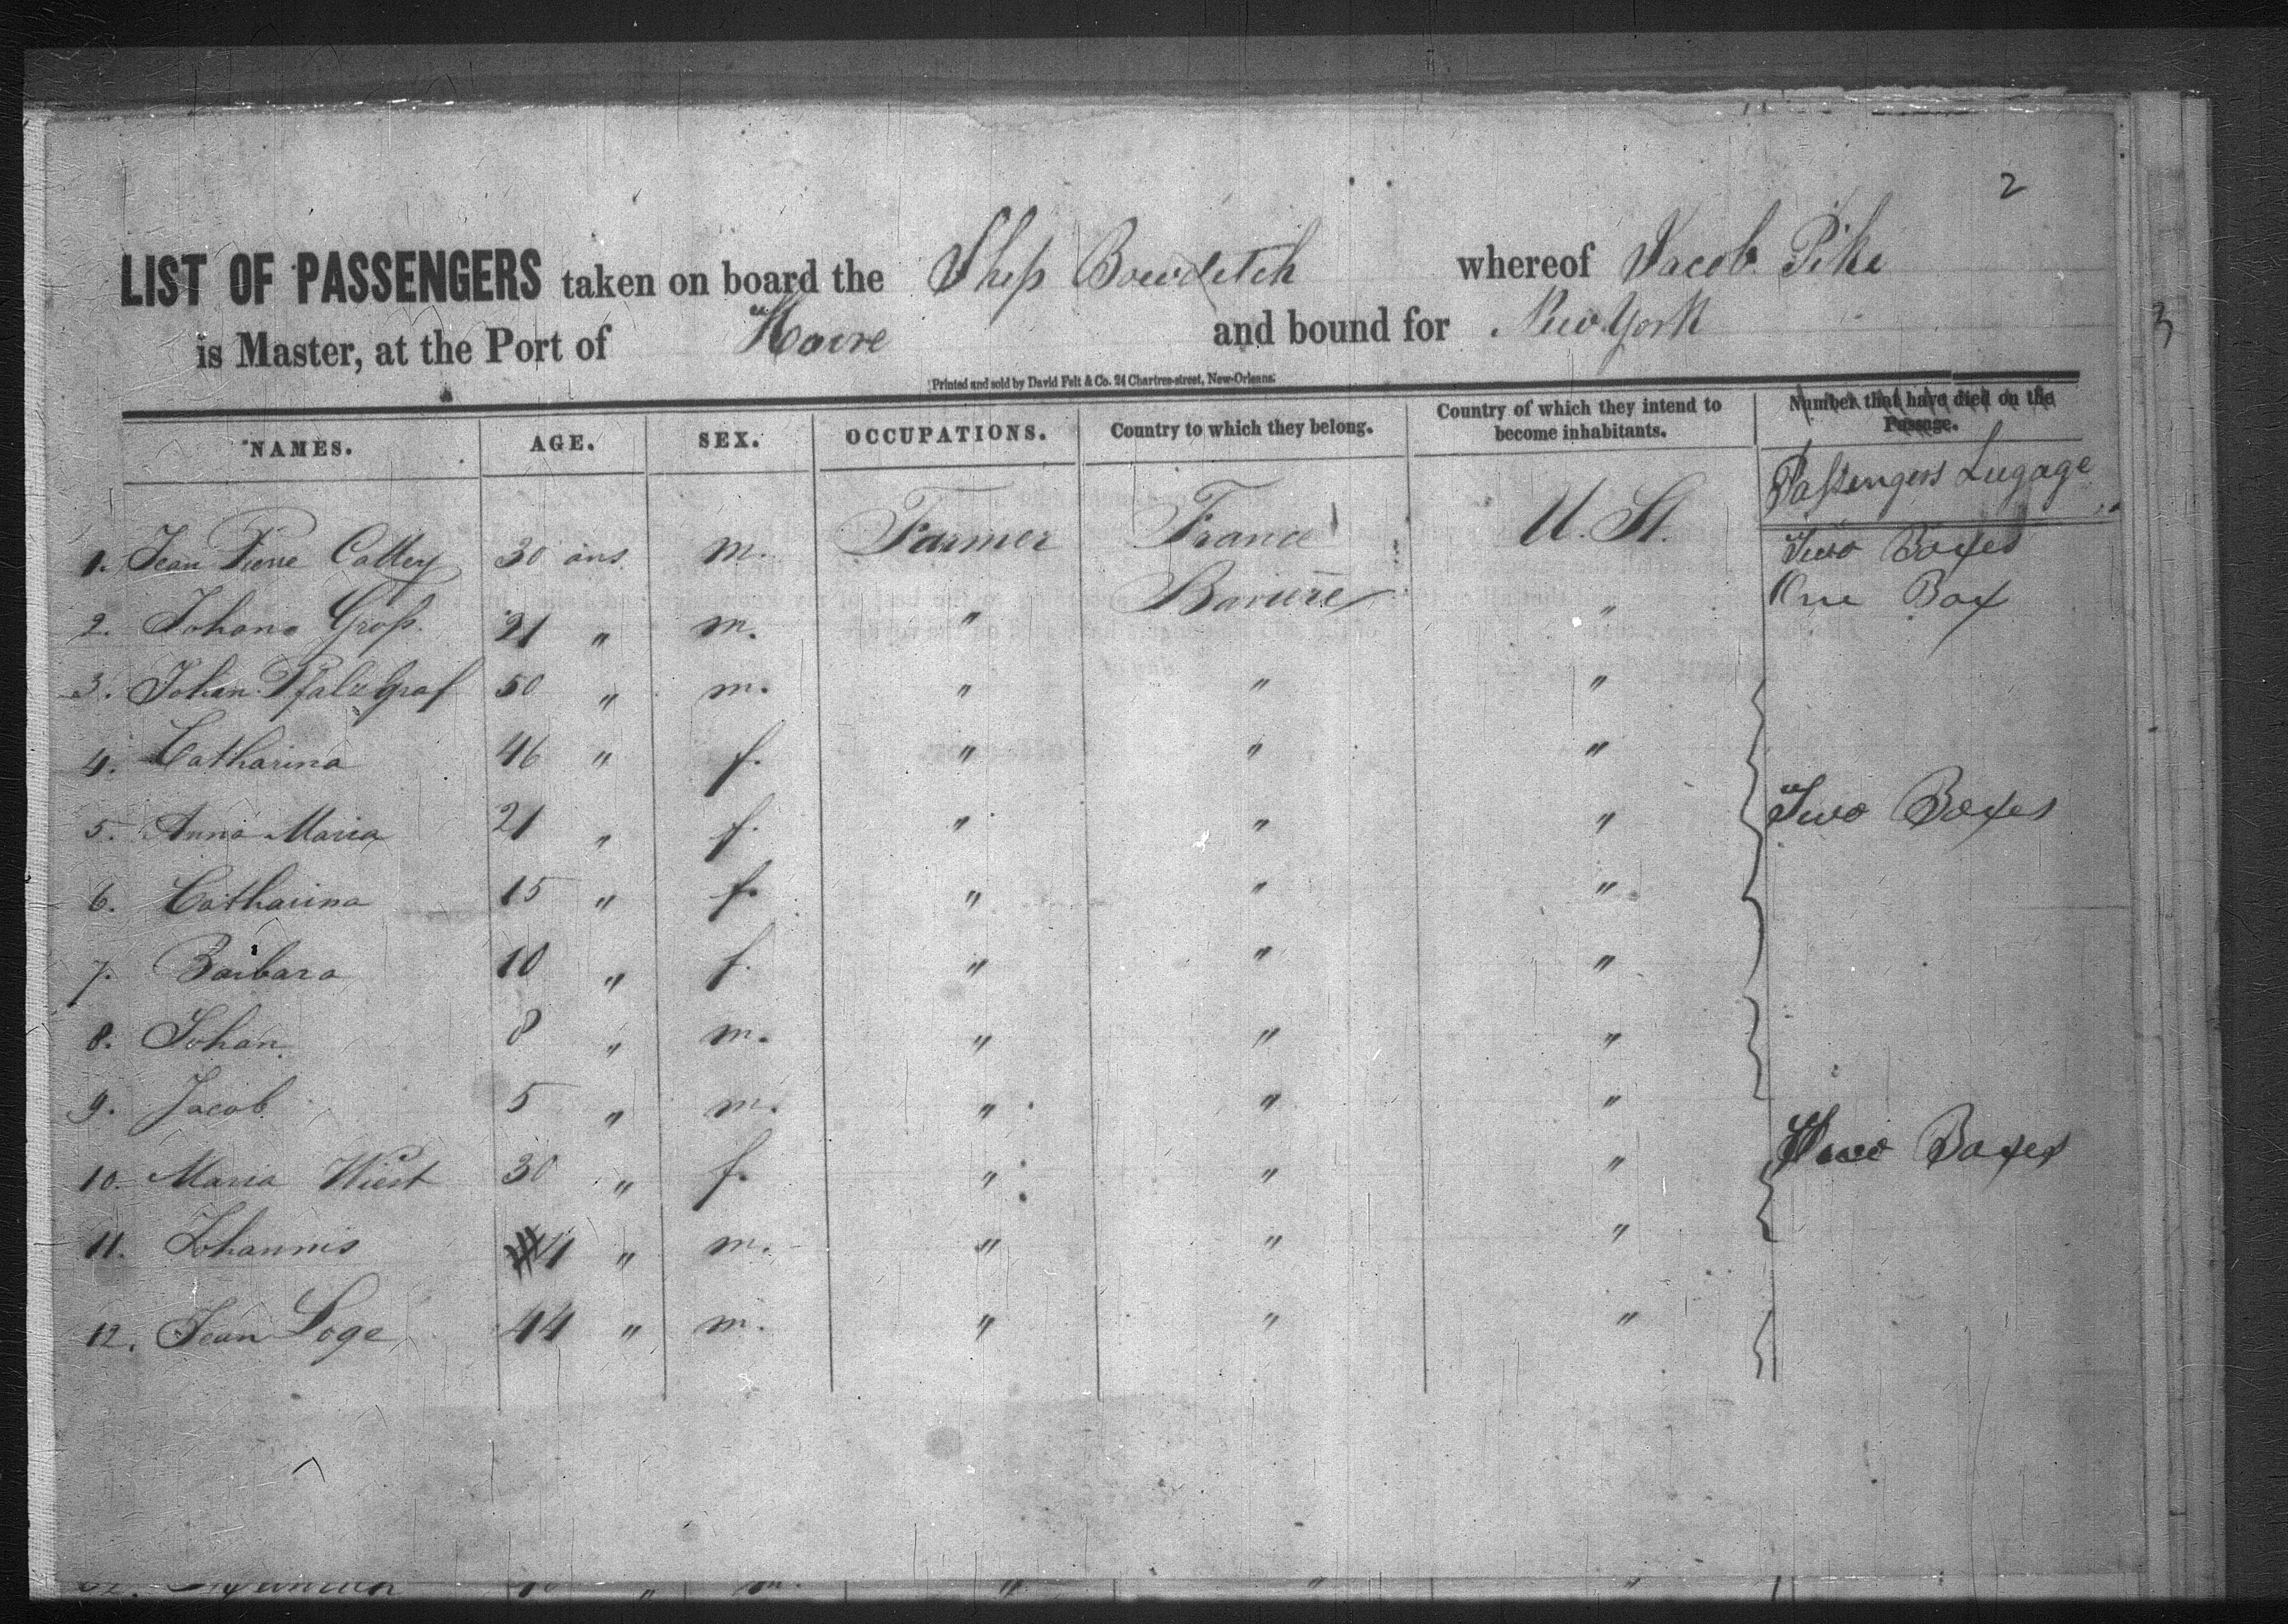 2
LIST OF PASSENGERS taken on board the Ship Bowditch whereof Jacob Pike
is Master, at the Port of Havre and bound for New York
3
Printed and sold by David Felt & Co. 24 Chartres-street, New-Orleans.
NAMES. AGE. SEX. OCCUPATIONS. Country to which they belong. Country of which they intend to become inhabitants. Number that have died on the Passage.
Passengers Lugage
1. Jean Pierre Calley 30 ans m. Farmer France U. St. Two Boxes
2. Johann Groß 21 " m. " Bariere " One Box
3. Johan Pfalzgraf 50 " m. " " "
4. Catharina 46 " f. " " "
5. Anna Maria 21 " f. " " " Two Boxes
6. Catharina 15 " f. " " "
7. Barbara 10 " f. " " "
8. Johan 8 " m. " " "
9. Jacob 5 " m. " " "
10. Maria Wiest 30 " f. " " " Two Boxes
11. Johannis " m. " " "
12. Jean Loge 44 " m. " " "